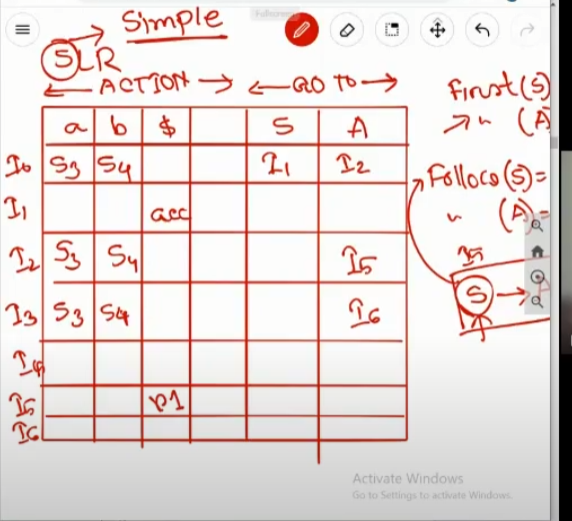 Simple
SLR
ACTION GO TO
a b $ S A
I0 S3 S4 I1 I2
I1 acc
I2 S3 S4 I5
I3 S3 S4 I6
I4
I5 r1
I6
First(S)
" (A)
Follow(S)=
" (A)=
I5
S → A
Activate Windows
Go to Settings to activate Windows.